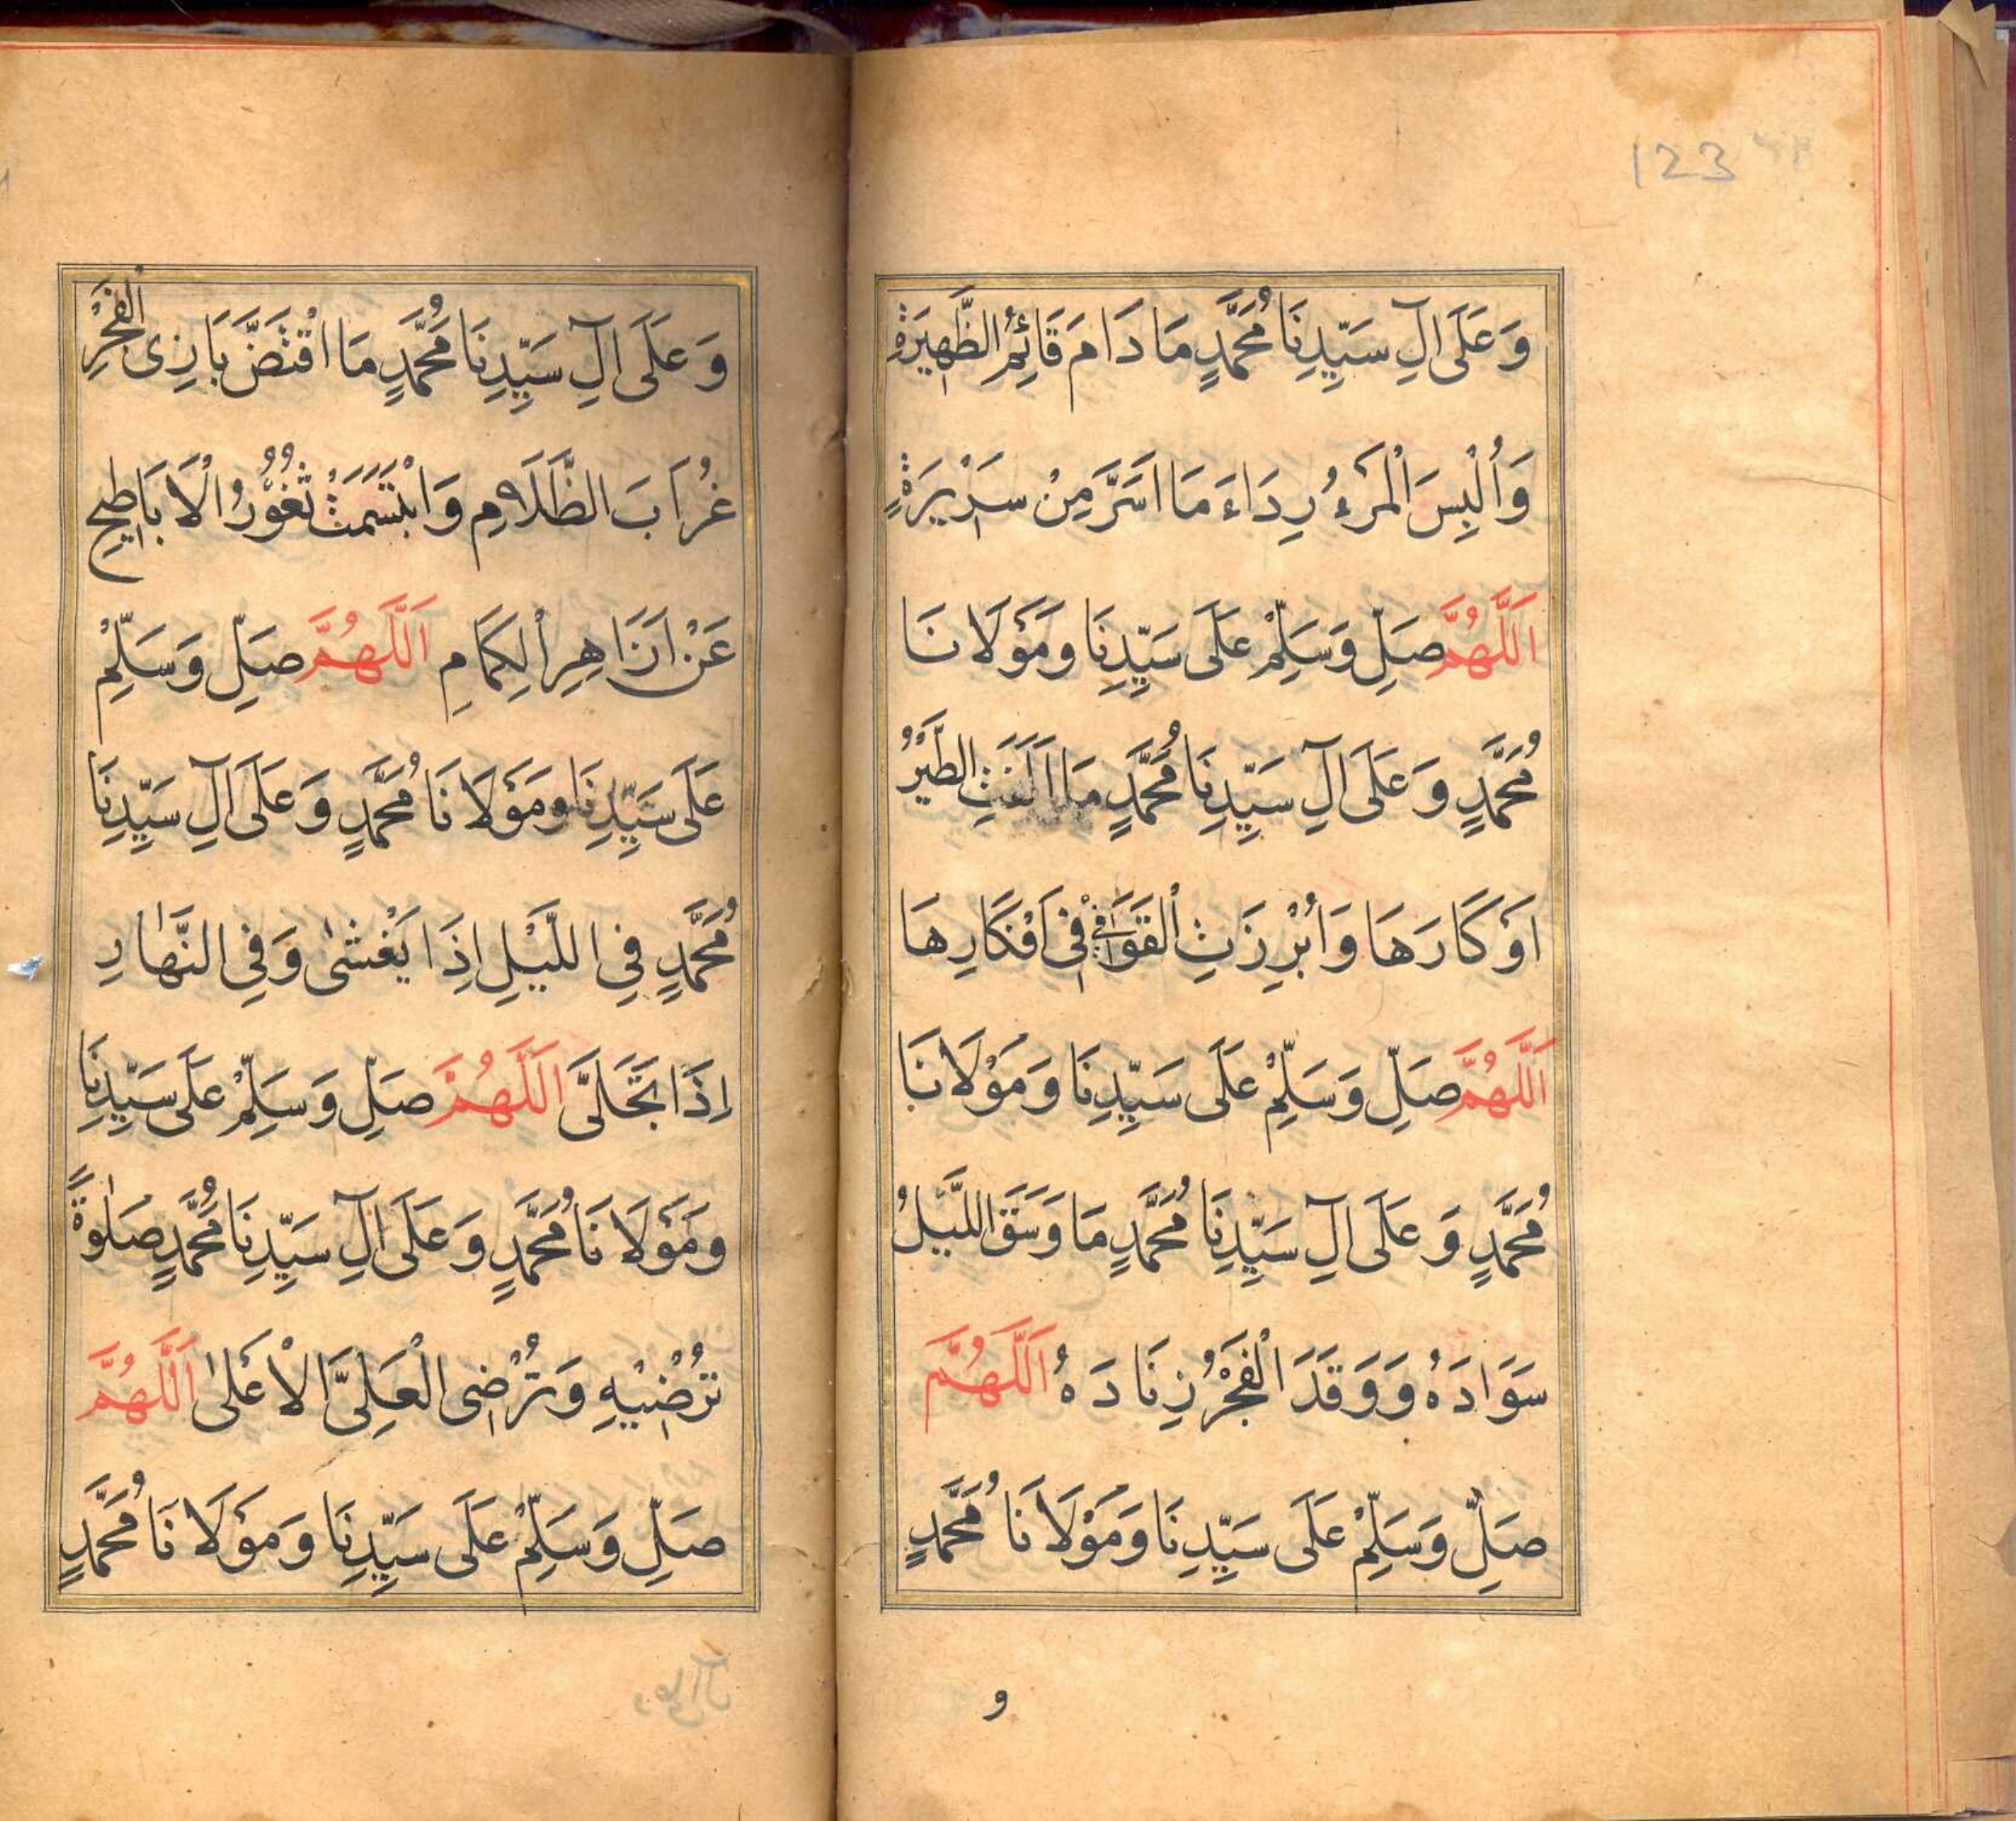 123
وَعَلَى اٰلِ سَيِّدِنَا مُحَمَّدٍ مَا دَامَ قَائِمُ الظَّهِيرَةِ
وَأُلْبِسَ الْمَرْءُ رِدَاءَ مَا اَسَرَّ مِنْ سَرِيرَةٍ
اَللّٰهُمَّ صَلِّ وَسَلِّمْ عَلَى سَيِّدِنَا وَمَوْلَانَا
مُحَمَّدٍ وَعَلَى اٰلِ سَيِّدِنَا مُحَمَّدٍ مَا الطَّيْرُ
اَوْكَارَهَا وَاُبْرِزَتِ الْقَوَافِي فِي اَفْكَارِهَا
اَللّٰهُمَّ صَلِّ وَسَلِّمْ عَلَى سَيِّدِنَا وَمَوْلَانَا
مُحَمَّدٍ وَعَلَى اٰلِ سَيِّدِنَا مُحَمَّدٍ مَا وَسَقَ اللَّيْلُ
سَوَادَهُ وَوَقَدَ الْفَجْرُ زِنَادَهُ اَللّٰهُمَّ
صَلِّ وَسَلِّمْ عَلَى سَيِّدِنَا وَمَوْلَانَا مُحَمَّدٍ
و
وَعَلَى اٰلِ سَيِّدِنَا مُحَمَّدٍ مَا اقْتَضَّ بَازِى الْفَجْرِ
غُرَابَ الظَّلَامِ وَابْتَسَمَتْ ثُغُوْرُ الْاَبَاطِحِ
عَنْ اَزَاهِرِ الْكِمَامِ اَللّٰهُمَّ صَلِّ وَسَلِّمْ
عَلَى سَيِّدِنَا وَمَوْلَانَا مُحَمَّدٍ وَعَلَى اٰلِ سَيِّدِنَا
مُحَمَّدٍ فِي اللَّيْلِ اِذَا يَغْشٰى وَفِي النَّهَارِ
اِذَا تَجَلَّى اَللّٰهُمَّ صَلِّ وَسَلِّمْ عَلَى سَيِّدِنَا
وَمَوْلَانَا مُحَمَّدٍ وَعَلَى اٰلِ سَيِّدِنَا مُحَمَّدٍ صَلٰوةً
تُرْضِيْهِ وَتُرْضِى الْعَلِىَّ الْاَعْلٰى اَللّٰهُمَّ
صَلِّ وَسَلِّمْ عَلَى سَيِّدِنَا وَمَوْلَانَا مُحَمَّدٍ